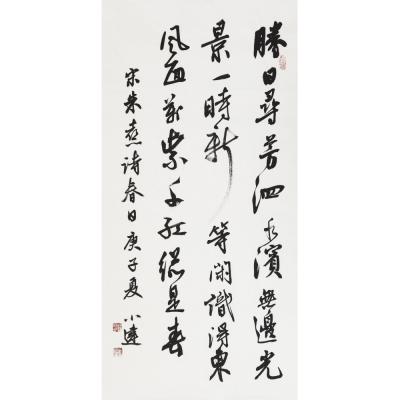 勝日尋芳泗水濱無邊光
景一時新等閑識得東
風面萬紫千紅總是春
宋朱熹詩春日庚子夏小